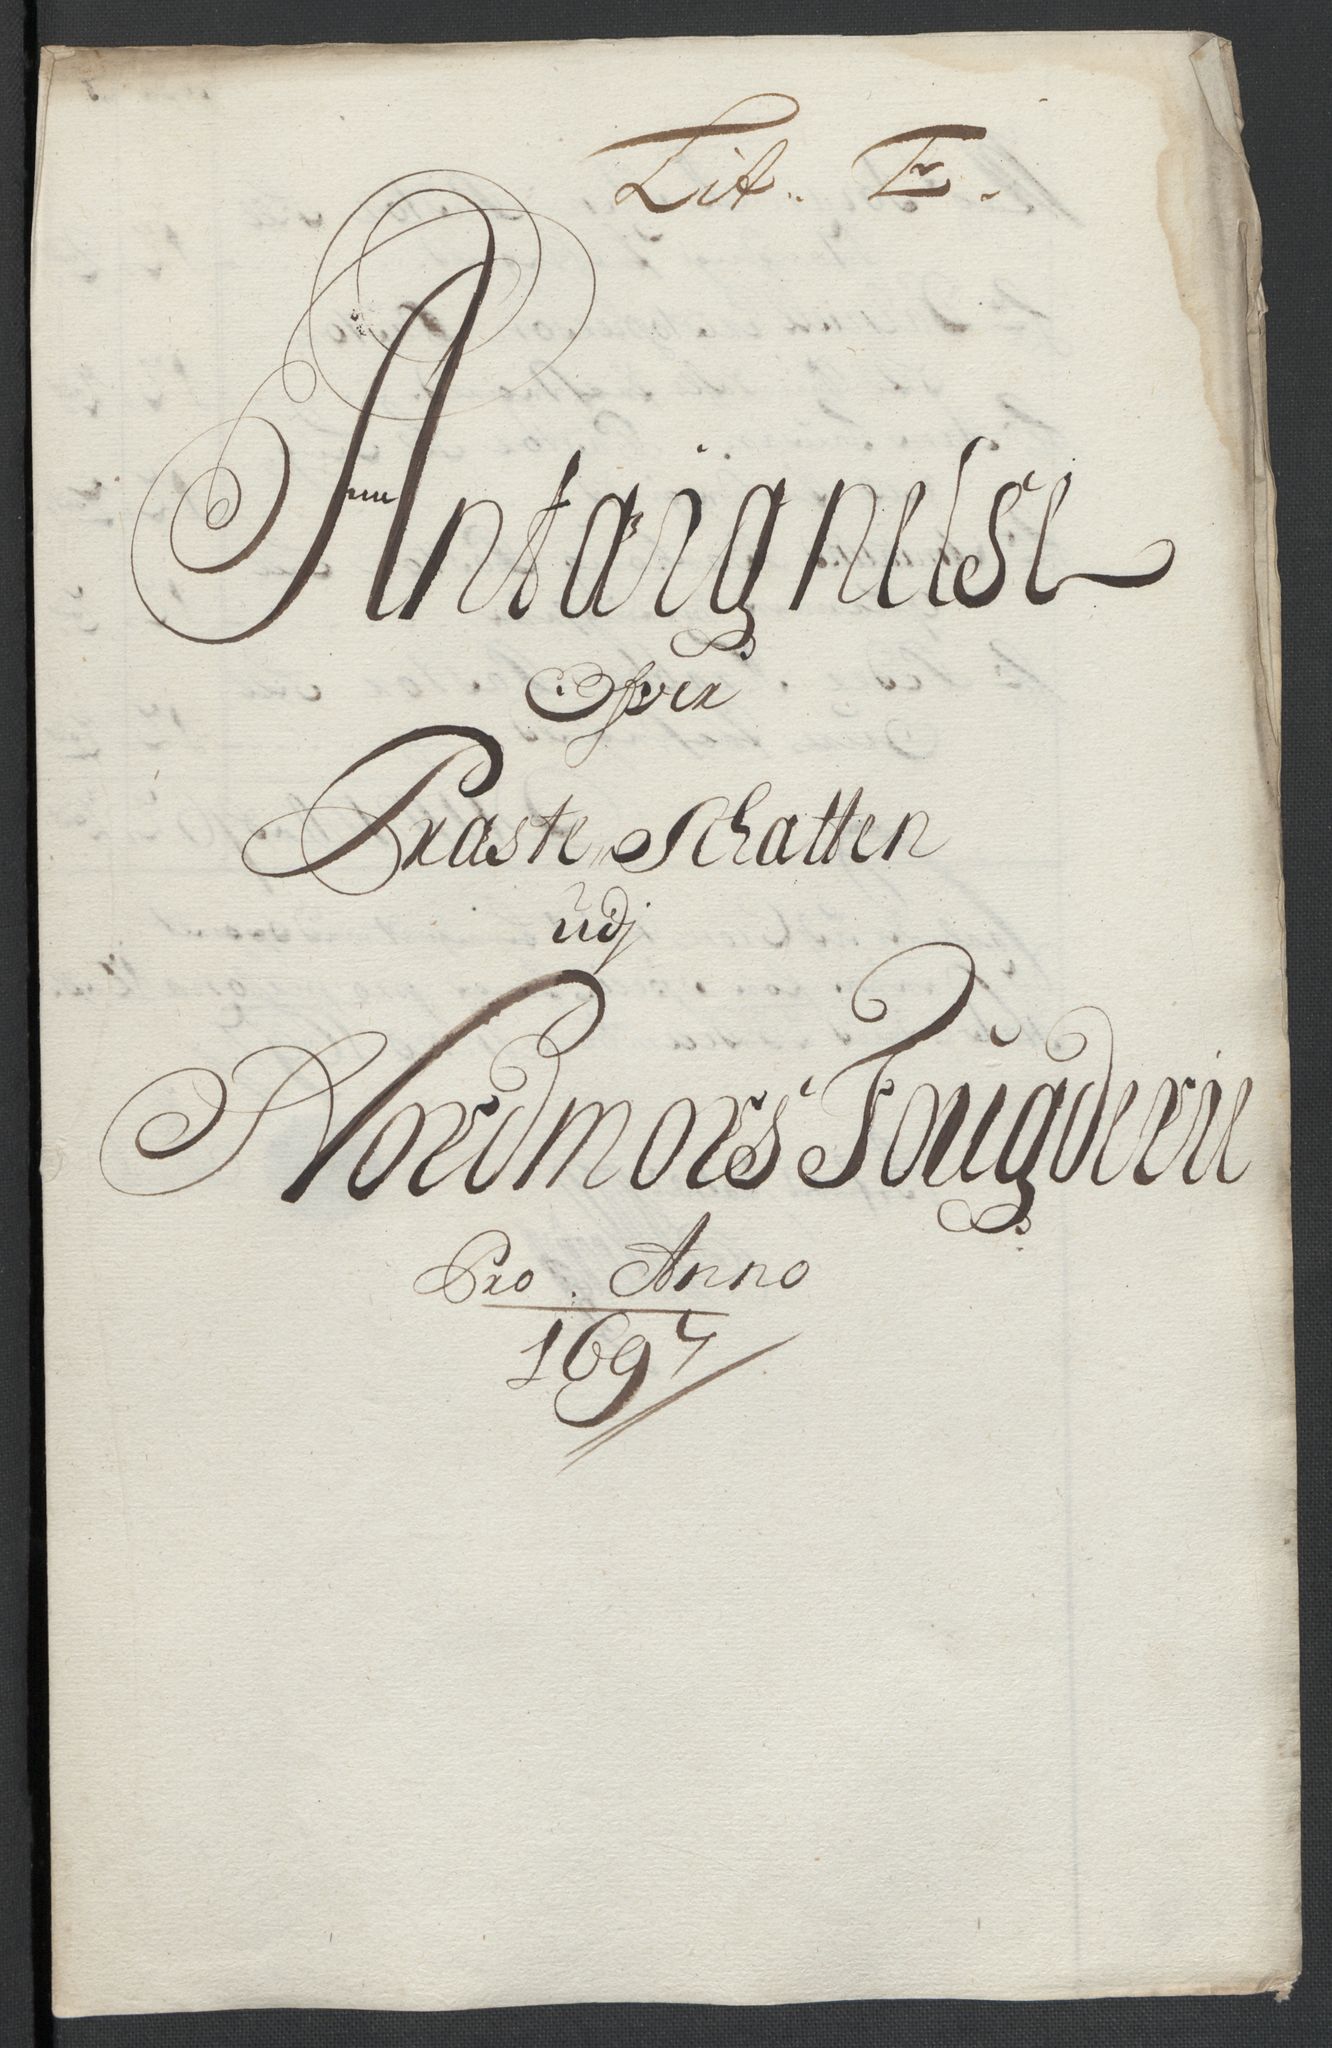 Lit. E.
Antægnelse
Ofver
Præste Schatten
udj
Nordmørs Fougderie
Pro. Anno
1697